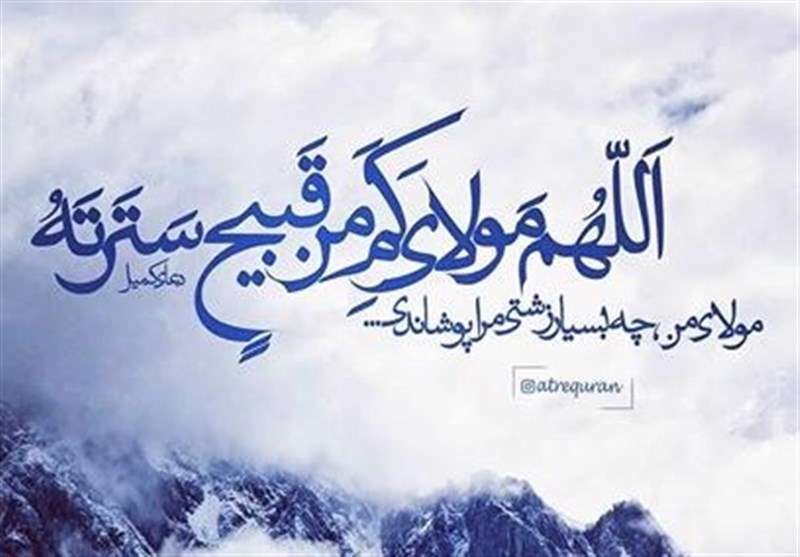 اَللّهُمَ مَولایَ کَم مِن قَبیحٍ سَتَرتَهُ
دعای کمیل
مولای من، چه بسیار زشتی مرا پوشاندی...
@atrequran